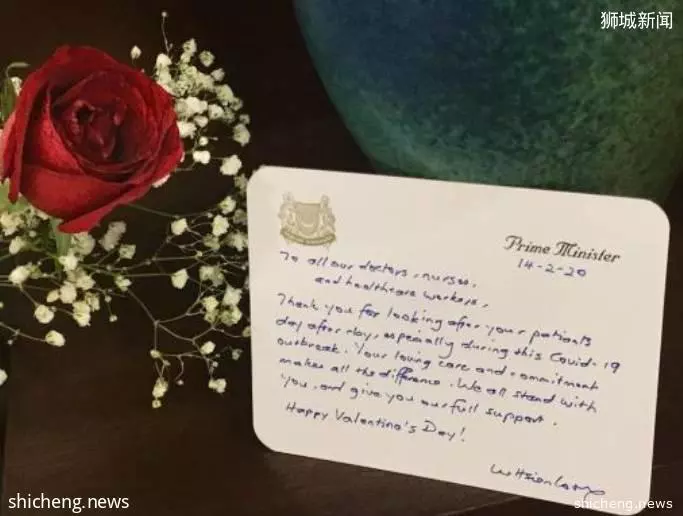 狮城新闻
Prime Minister
14-2-20
To all our doctors, nurses,
and healthcare workers,
Thank you for looking after your patients
day after day, especially during this Covid-19
outbreak. Your loving care and commitment
makes all the difference. We all stand with
you, and give you our full support.
Happy Valentine's Day!
shicheng.news
shicheng.news